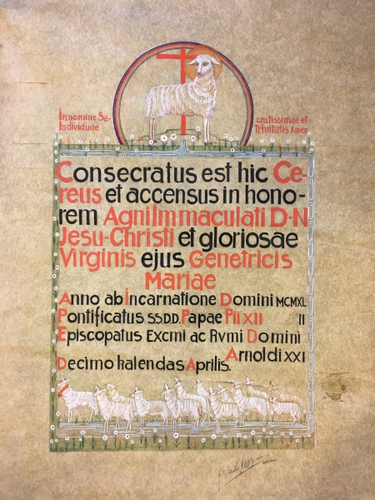 In nomine Sa- nctissimae et
Individuae Trinitatis Amen
Consecratus est hic Ce-
reus et accensus in hono-
rem Agni Immaculati D-N
Jesu-Christi et gloriosae
Virginis ejus Genetricis
Mariae
Anno ab Incarnatione Domini MCMXL
Pontificatus SS.DD. Papae Pii XII II
Episcopatus Excmi ac Rvmi Domini
Arnoldi XXI
Decimo kalendas Aprilis.